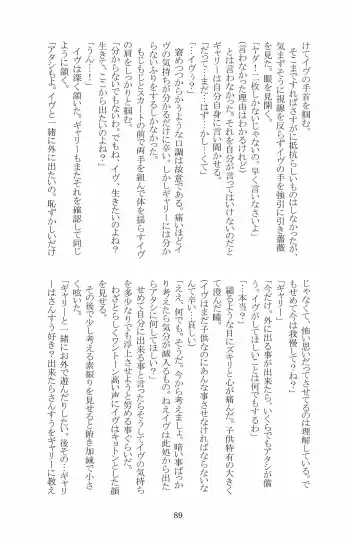 けてイヴの手首を掴む。
そこまですればさすがに抵抗らしいものはしなかったが、
気まずそうに視線を反らすイヴの手を強引に引き薔薇
を見た。眼を見開く。
「ヤダ！二枚しかないじゃないの。早く言いなさいよ」
(言わなかった理由はわかるけれど)
とは言わなかった。それを自分が言ってはいけないのだと
ギャリーは自分自身に言い聞かせる。
「だって…まだ…はず…かし…くて」
「…イヴぅ？」
窘めつつからかうような口調は故意である。痛いほどイ
ヴの気持ちが分かるだけに辛い。しかしギャリーには分か
らないふりをするしかなかった。
もじもじとスカートの前で両手を組んで体を揺らすイヴ
の肩をしっかりと掴む。
「分からないでもないわ。でもね、イヴ、生きたいのよね？
生きて、ここから出たいのよね？」
「うん…！」
イヴは深く頷いた。ギャリーもまたそれを確認して同じ
ように頷く。
「アタシもよ。イヴと一緒に外に出たいの。恥ずかしいだけ
じゃなくて、怖い思いだってさせてるのは理解している。で
もせめて今は我慢して？ね？」
「ギャリー…」
「今だけ。外に出る事が出来たら、いくらでもアタシが償
う。イヴがしてほしいことは何でもするわ」
「…本当？」
縋るような目にズキリと心が痛んだ。子供特有の大きく
て澄んだ瞳。
(イヴはまだ子供なのにあんな事させなければならないな
んて辛い…哀しい)
「ええ、何でも。そうだ、今から考えましょ。暗い事ばっか
り考えたら気分が滅入るもの。ねえイヴは此処から出た
らアタシに何してほしい？」
せめて自分に出来る事と言ったらそうしてイヴの気持ち
を多少なりでも浮上させようと努める事ぐらいだ。
わざとらしくワントーン高い声にイヴはキョトンとした顔
を見せる。
その後で少し考える素振りを見せると俯き加減で小さ
く呟いた。
「ギャリーと一緒にお外で遊んだりしたい。後その…ギャリ
ーはさんすう好き？出来たらさんすうをギャリーに教え
89